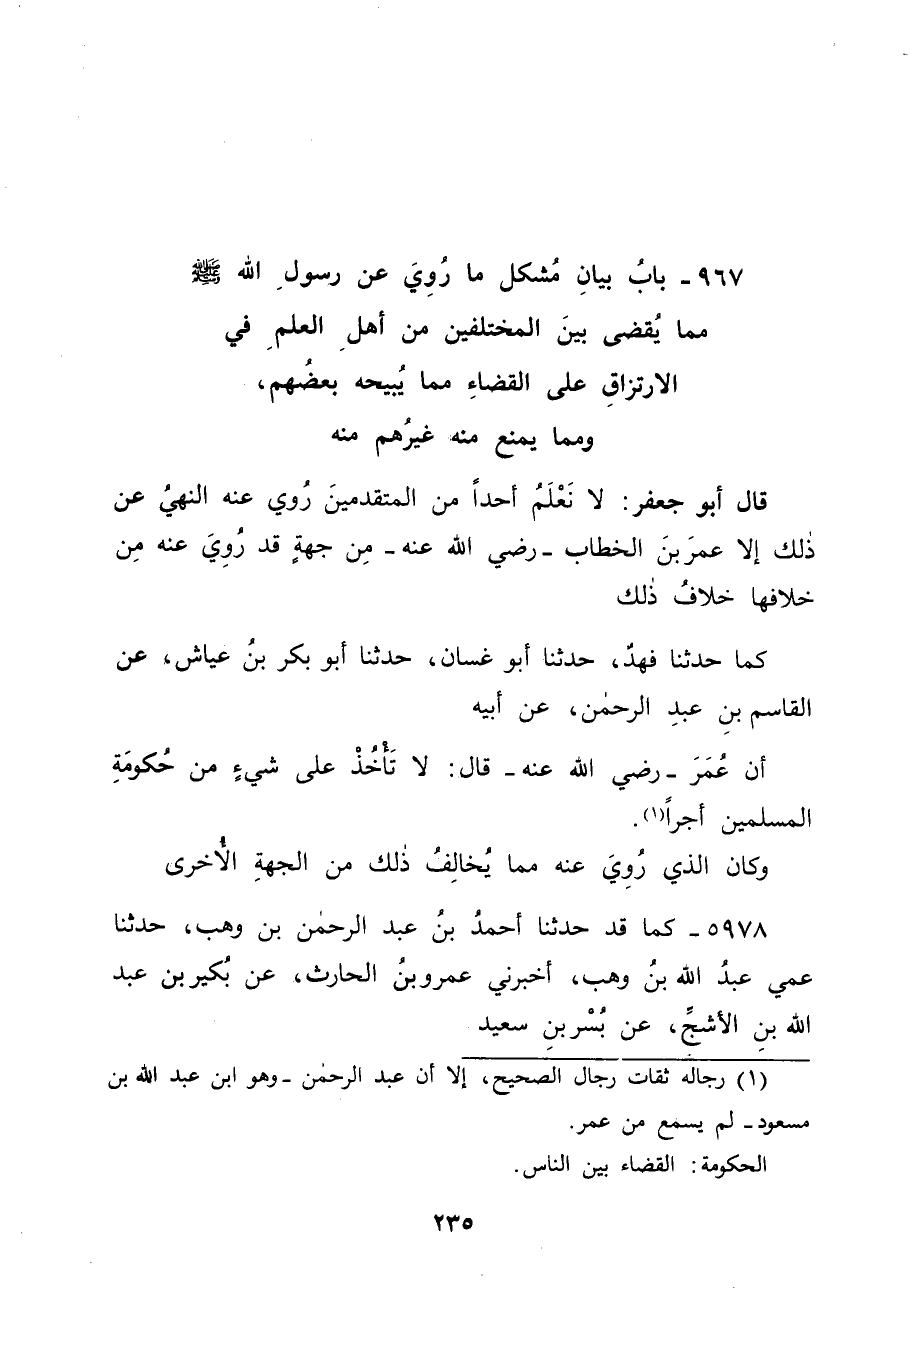 ٩٦٧ ـ بابُ بيانِ مُشكل ما رُوِيَ عن رسولِ الله ﷺ
مما يُقضى بينَ المختلفين من أهلِ العلمِ في
الارتزاقِ على القضاءِ مما يُبيحه بعضُهم،
ومما يمنع منه غيرُهم منه
قال أبو جعفر: لا نَعْلَمُ أحداً من المتقدمينَ رُوي عنه النهيُ عن
ذٰلك إلا عمرَ بنَ الخطاب ـ رضي الله عنه ـ مِن جهةٍ قد رُوِيَ عنه مِن
خلافها خلافُ ذٰلك
كما حدثنا فهدٌ، حدثنا أبو غسان، حدثنا أبو بكر بنُ عياش، عن
القاسم بنِ عبدِ الرحمٰن، عن أبيه
أن عُمَرَ ـ رضي الله عنه ـ قال: لا تَأْخُذْ على شيءٍ من حُكومَةِ
المسلمين أجراً(١).
وكان الذي رُوِيَ عنه مما يُخالِفُ ذٰلك من الجهةِ الأُخرى
٥٩٧٨ ـ كما قد حدثنا أحمدُ بنُ عبد الرحمٰن بن وهب، حدثنا
عمي عبدُ الله بنُ وهب، أخبرني عمرو بنُ الحارث، عن بُكير بن عبد
الله بنِ الأشجِّ، عن بُسْرِ بنِ سعيد
(١) رجاله ثقات رجال الصحيح، إلا أن عبد الرحمٰن ـ وهو ابن عبد الله بن
مسعود ـ لم يسمع من عمر.
الحكومة: القضاء بين الناس.
٢٣٥